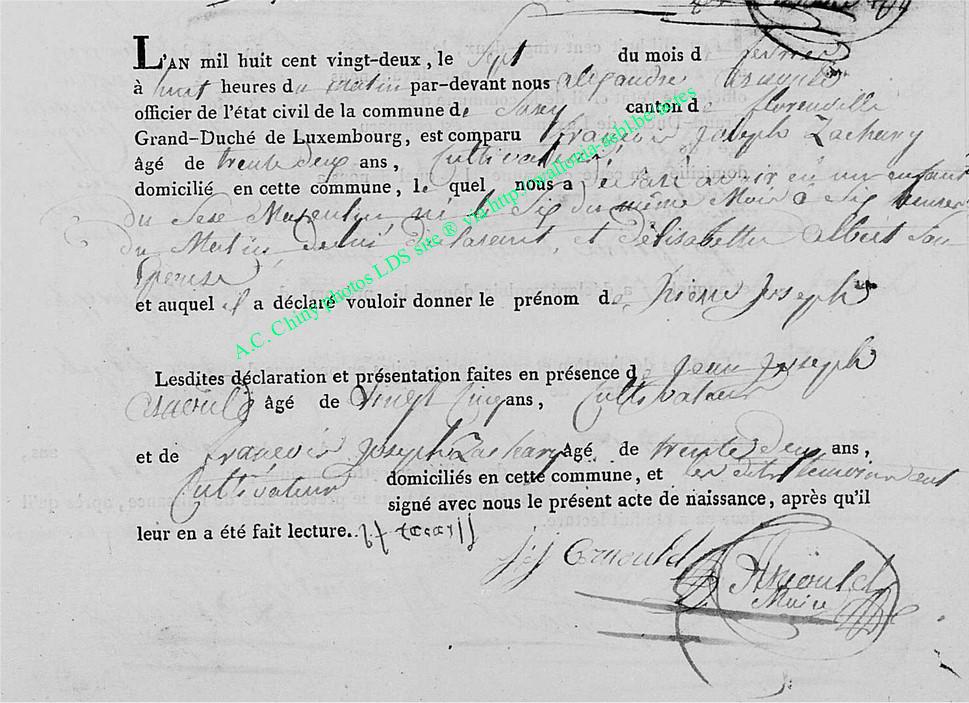 L'AN mil huit cent vingt-deux, le Sept du mois de fevrier
à huit heures du matin par-devant nous alexandre
officier de l'état civil de la commune de canton de florenville
Grand-Duché de Luxembourg, est comparu françois Joseph Zachary
âgé de trente deux ans, Cultivateur
domicilié en cette commune, le quel nous a déclaré avoir eu un enfant
du Sexe Masculin né le Six du même Mois à Six heures
du Matin de lui déclarant, et d'élisabette albert Son
Epouse
et auquel il a déclaré vouloir donner le prénom de Pierre Joseph
Lesdites déclaration et présentation faites en présence de Jean Joseph
arnould âgé de Vingt Cinq ans, Cultivateur
et de françois Joseph Zachary âgé de trente deux ans,
Cultivateur domiciliés en cette commune, et les dits témoins ont
signé avec nous le présent acte de naissance, après qu'il
leur en a été fait lecture.
j j Arnould Arnould
Maire
A.C. Chiny photos LDS site ® via http://wallonia-asbl.be notes